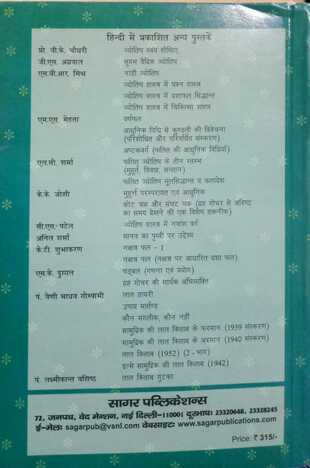 हिन्दी में प्रकाशित अन्य पुस्तकें
प्रो. वी.के. चौधरी ज्योतिष स्वयं सीखिए
जी.एस. अग्रवाल सुगम वैदिक ज्योतिष
एस.बी.आर. मिश्र नाड़ी ज्योतिष
ज्योतिष शास्त्र में प्रश्न शास्त्र
ज्योतिष शास्त्र में दशाफल सिद्धान्त
ज्योतिष शास्त्र में चिकित्सा शास्त्र
एम.एस. मेहता वर्षफल
आधुनिक विधि से कुण्डली की विवेचना
(परिशोधित और परिवर्धित संस्करण)
अष्टकवर्ग (फलित की आधुनिक विधियाँ)
एल.सी. शर्मा फलित ज्योतिष के तीन स्तम्भ
(मुहूर्त, विवाह, सन्तान)
फलित ज्योतिष मूलसिद्धान्त व फलादेश
के.के. जोशी मुहूर्त्त परम्परागत एवं आधुनिक
कोट चक्र और संघट चक्र (ग्रह गोचर से अरिष्ट
का समय देखने की एक विशेष तकनीक)
सी.एस. पटेल ज्योतिष शास्त्र में नवांश का
अनिल शर्मा मानव का पृथ्वी पर उद्देश्य
के.टी. शुभाकरण नक्षत्र फल - 1
नक्षत्र फल (नक्षत्र पर आधारित दशा फल)
एम.के. दुग्गल षड्बल (गणना एवं प्रयोग)
ग्रह गोचर की सार्थक अभिव्यक्ति
पं. वेणी माधव गोस्वामी लाल डायरी
उपाय मार्तण्ड
कौन मांगलीक, कौन नहीं
सामुद्रिक की लाल किताब के फरमान (1939 संस्करण)
सामुद्रिक की लाल किताब के अरमान (1940 संस्करण)
लाल किताब (1952) (2 - भाग)
इल्मे सामुद्रिक की लाल किताब (1942)
पं. लक्ष्मीकान्त वशिष्ठ लाल किताब गुटका
सागर पब्लिकेशन्स
72, जनपथ, वेद मेन्शन, नई दिल्ली-110001 दूरभाष: 23320648, 23328245
ई-मेल: sagarpub@vsnl.com वेबसाइट www.sagarpublications.com
Price: ₹ 315/-